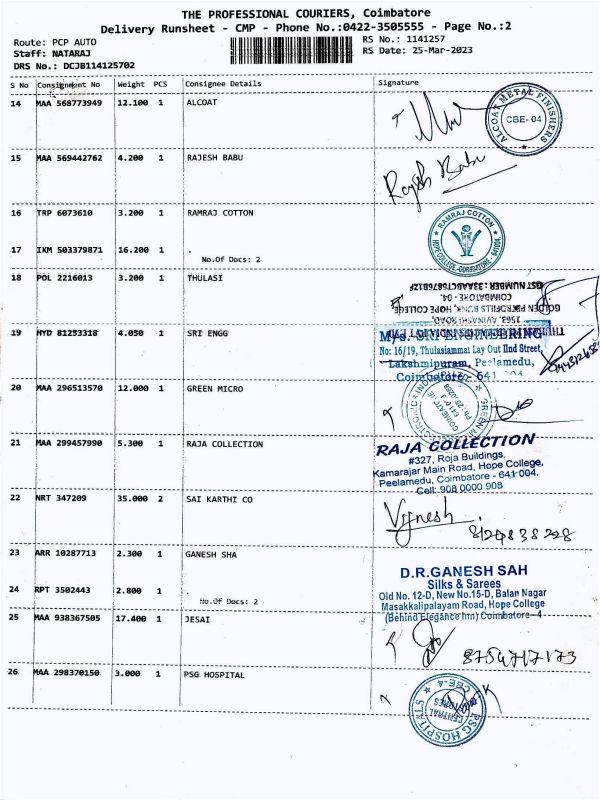 THE PROFESSIONAL COURIERS, Coimbatore
Delivery Runsheet - CMP - Phone No.:0422-3505555 - Page No.:2
Route: PCP AUTO
RS No.: 1141257
Staff: NATARAJ
RS Date: 25-Mar-2023
DRS No.: DCJB114125702
S No Consignment No Weight PCS Consignee Details Signature
14 MAA 568773949 12.100 1 ALCOAT
ALCOAT METAL FINISHERS
CBE-04
15 MAA 569442762 4.200 1 RAJESH BABU
Rajesh Babu
16 TRP 6073610 3.200 1 RAMRAJ COTTON
RAMRAJ COTTON
HOPE COLLEGE, COIMBATORE
17 IKM 503379871 16.200 1 .
No.Of Docs: 2
18 POL 2216013 3.200 1 THULASI
GST NUMBER : 33AABCT6876B1ZF
COIMBATORE - 04.
HOPE COLLEGE
1563, AVINASHI ROAD,
19 HYD 81253318 4.050 1 SRI ENGG
M/s. SRI ENGINEERING
No: 16/19, Thulasiammal Lay Out IInd Street,
Lakshmipuram, Peelamedu,
Coimbatore - 641
20 MAA 296513570 12.000 1 GREEN MICRO
21 MAA 299457990 5.300 1 RAJA COLLECTION
RAJA COLLECTION
#327, Roja Buildings,
Kamarajar Main Road, Hope College,
Peelamedu, Coimbatore - 641 004.
Cell: 908 0000 908
22 NRT 347209 35.000 2 SAI KARTHI CO
Vignesh
23 ARR 10287713 2.300 1 GANESH SHA
D.R.GANESH SAH
Silks & Sarees
Old No. 12-D, New No.15-D, Balan Nagar
Masakkalipalayam Road, Hope College
(Behind Elegance Inn) Coimbatore-4
24 RPT 3502443 2.800 1 .
No.Of Docs: 2
25 MAA 938367505 17.400 1 JESAI
8754717173
26 MAA 298370150 3.000 1 PSG HOSPITAL
PSG HOSPITALS
CENTRAL STORES
CBE-4